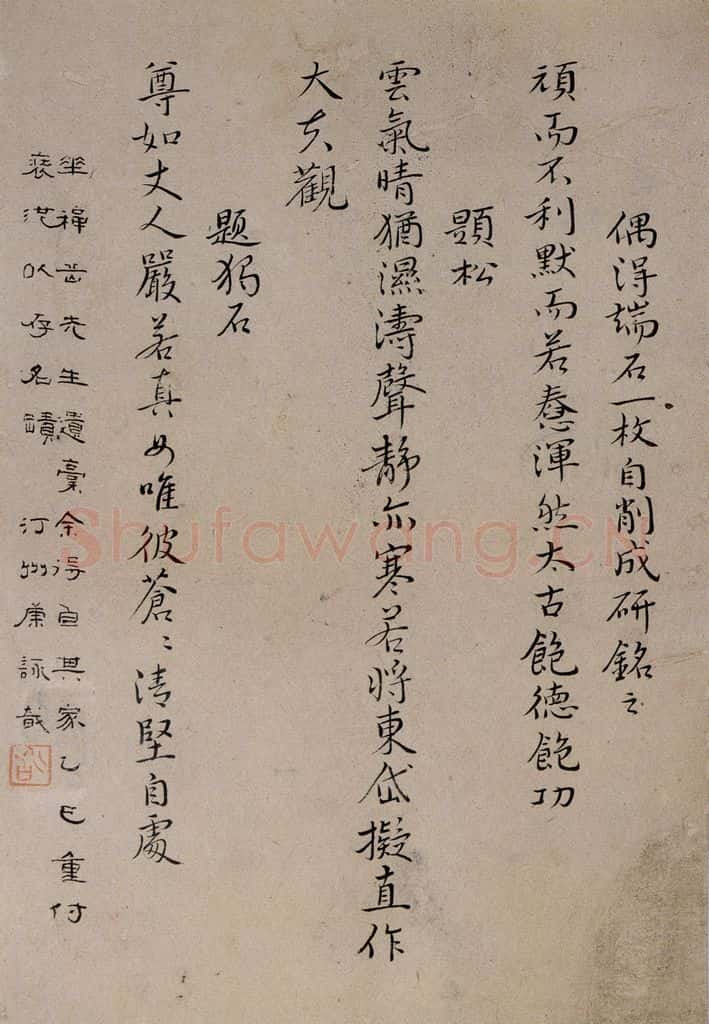 偶得端石一枚自削成研銘之
頑而不利默而若惷渾然太古飽德飽功
題松
雲氣晴猶濕濤聲靜亦寒若將東岱擬直作
大夫觀
題獨石
尊如丈人嚴若真女唯彼蒼〻清堅自處
坐禪嵒先生遺稾余得自其家乙巳重付
裘池以存名蹟 汀州廉詠哉
Shufawang.CN